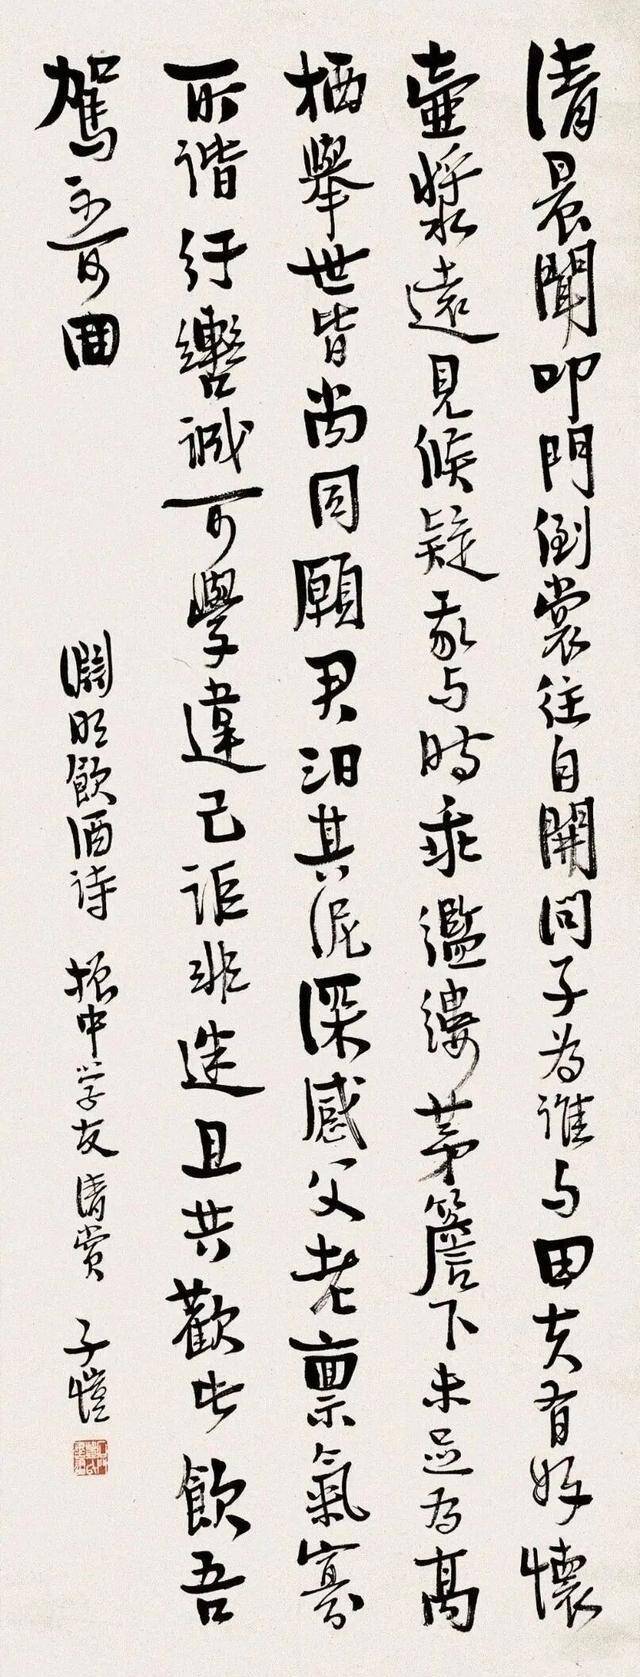 清晨聞叩門倒裳往自開問子為誰与田夫有好懷
壺漿遠見候疑我与時乖繿縷茅簷下未足為高
栖舉世皆尚同願君汩其泥深感父老稟氣寡
所諧紆轡誠可學違己詎非迷且共歡此飲吾
駕不可囬
淵明飲酒詩 振中学友清賞 子愷